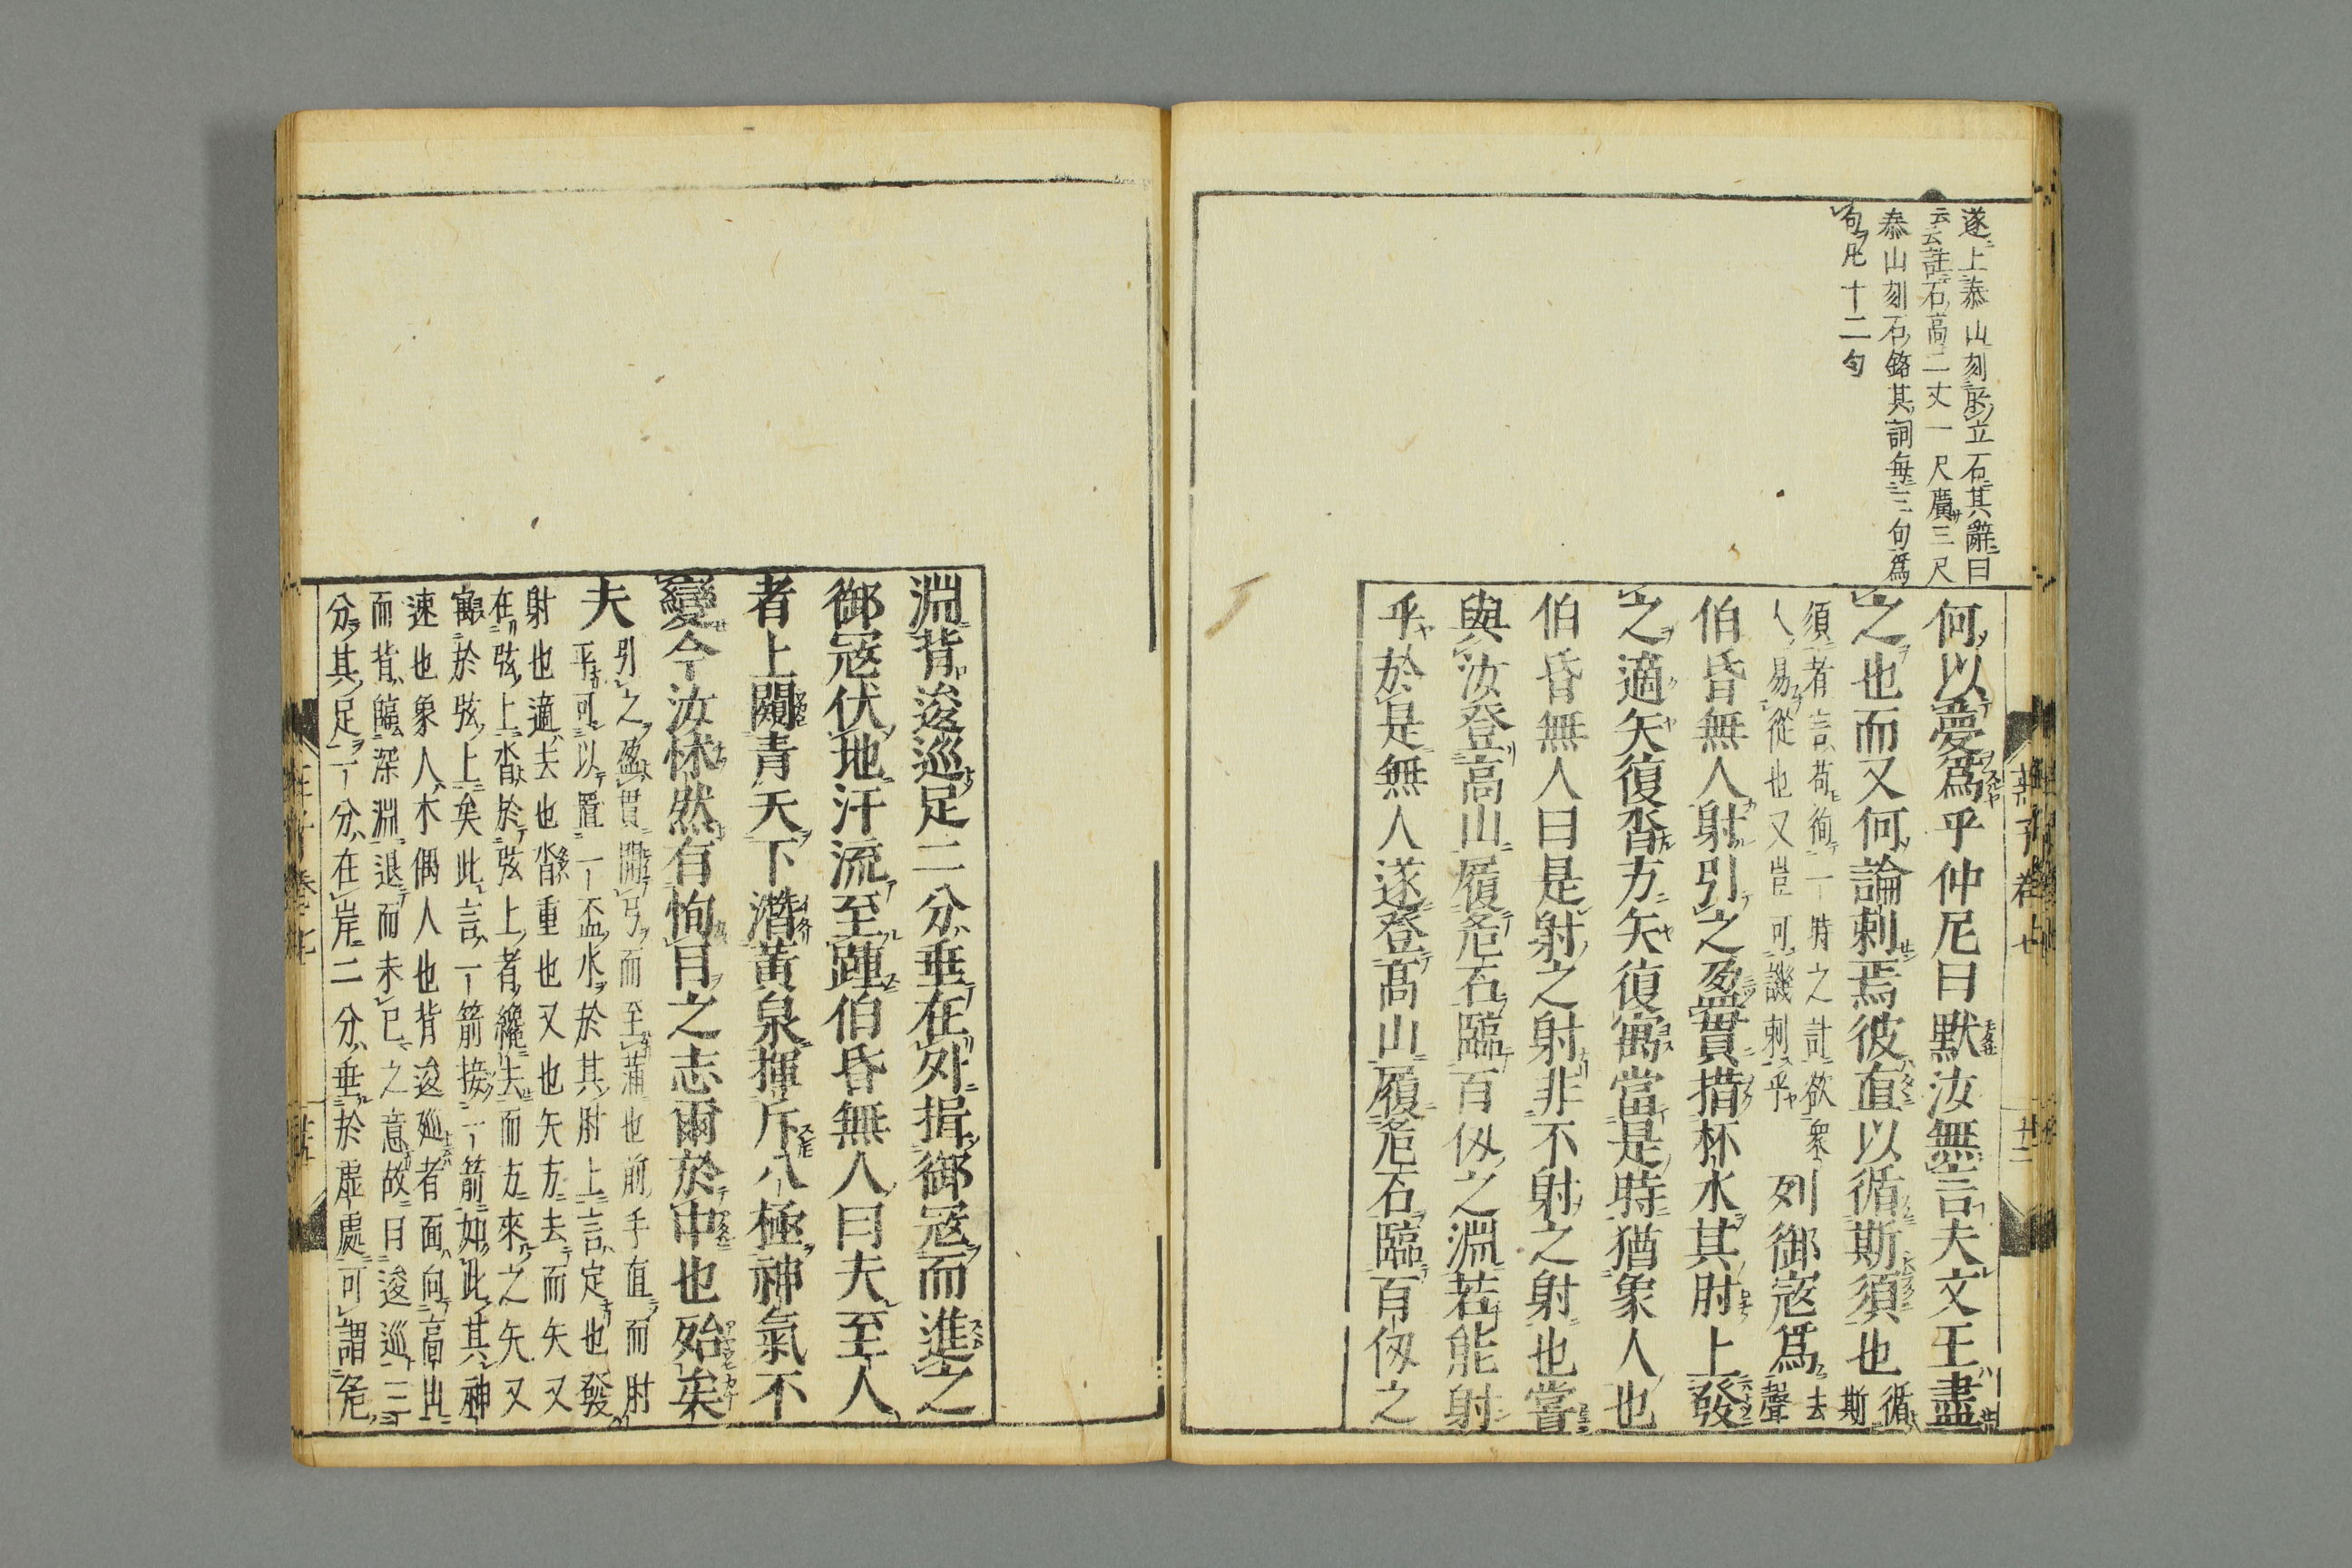 遂上泰山刻所立石其辭曰
云云註石高二丈一尺廣三尺
泰山刻石銘其詞每三句爲
句凡十二句
何以夢爲乎仲尼曰默汝無言夫文王盡
之也而又何論刺焉彼直以循斯須也 循
斯
須者言苟徇一時之計欲衆
人易從也又豈可譏刺乎 列御寇爲 去
聲
伯昏無人射引之盈貫措杯水其肘上發
之適矢復沓方矢復寓當是時猶象人也
伯昏無人曰是射之射非不射之射也嘗
與汝登高山履危石臨百仞之淵若能射
乎於是無人遂登高山履危石臨百仞之
莊子 卷七
廿二
淵背逡巡足二分垂在外揖御寇而進之
御寇伏地汗流至踵伯昏無人曰夫至人
者上闚青天下潛黃泉揮斥八極神氣不
變今汝怵然有恂目之志爾於中也殆矣
夫 引之盈貫開弓而至滿也前手直而肘
平可以置一盃水於其肘上言定也發
射也適去也沓重也又也矢方去而矢又
在弦上沓於弦上者纔去而方來之矢又
寓於弦上矣此言一箭接一箭如此其神
速也象人木偶人也背逡巡者面向高山
而背臨深淵退而未已之意故曰逡巡三
分其足一分在岸二分垂於虛處可謂危